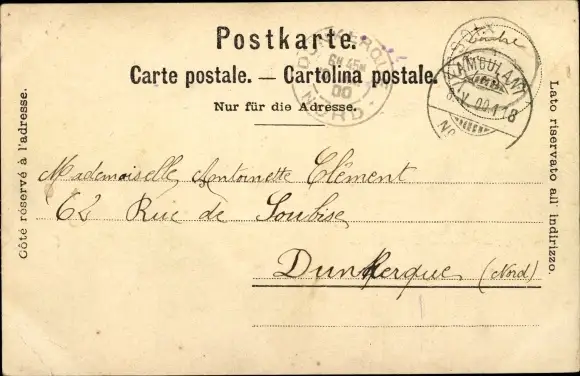 Postkarte.
Carte postale. — Cartolina postale.
Nur für die Adresse.
Côté réservé à l'adresse.
Lato riservato all' indirizzo.
DUNKERQUE
NORD
00
AMBULANT
Mademoiselle Antoinette Clément
62 Rue de Soubise
Dunkerque (Nord)